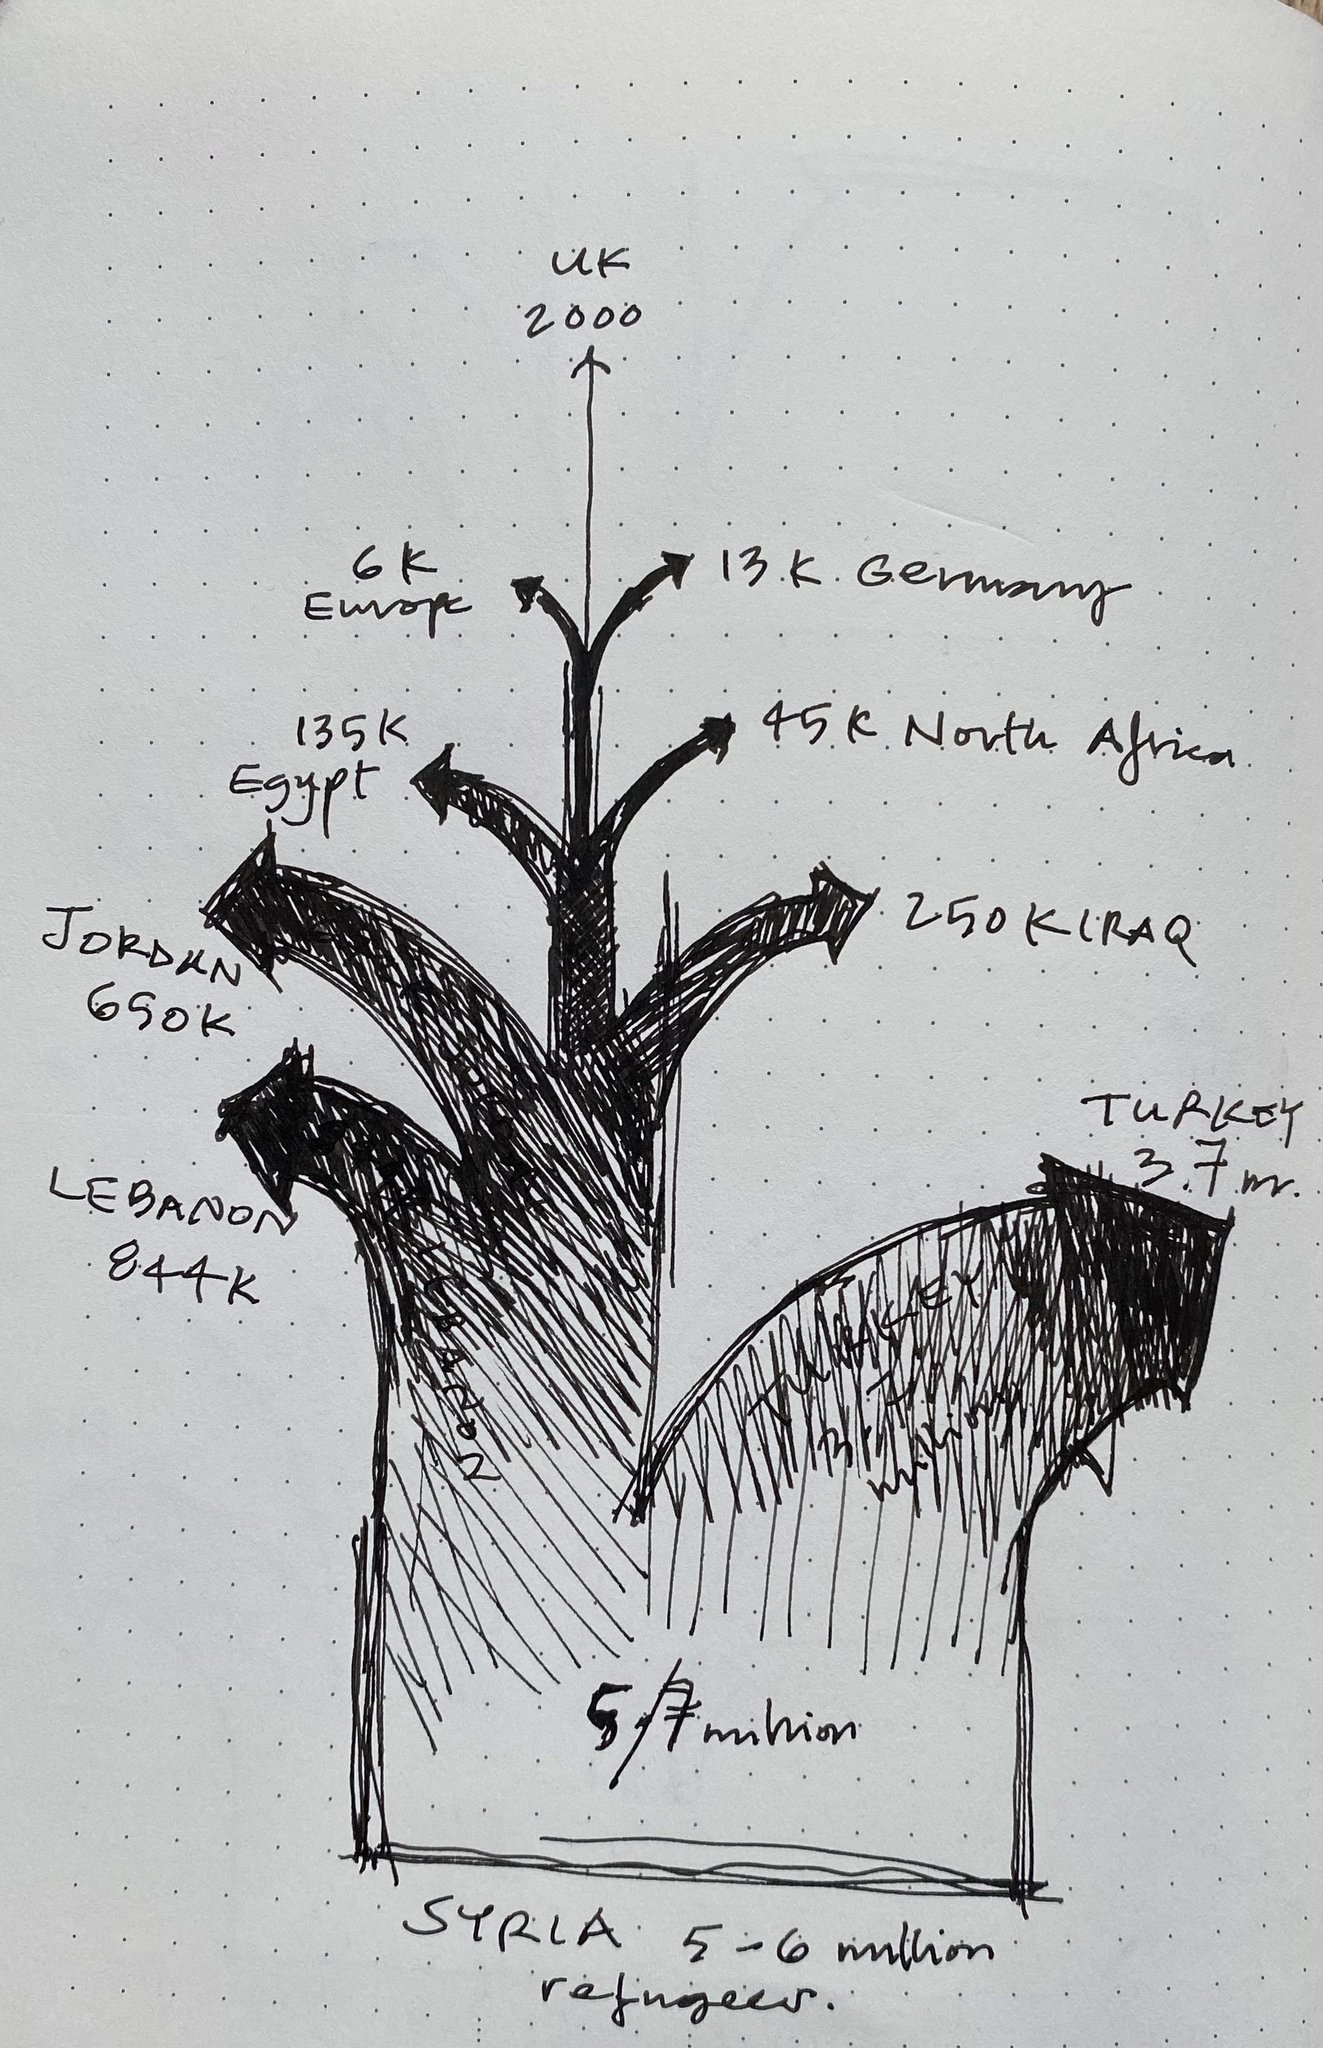 UK
2000
6K
Europe
13K Germany
135K
Egypt
45K North Africa
JORDAN
690K
250K IRAQ
TURKEY
3.7 m.
LEBANON
844K
LEBANON
TURKEY
3.7
million
5.7 million
SYRIA 5-6 million
refugees.